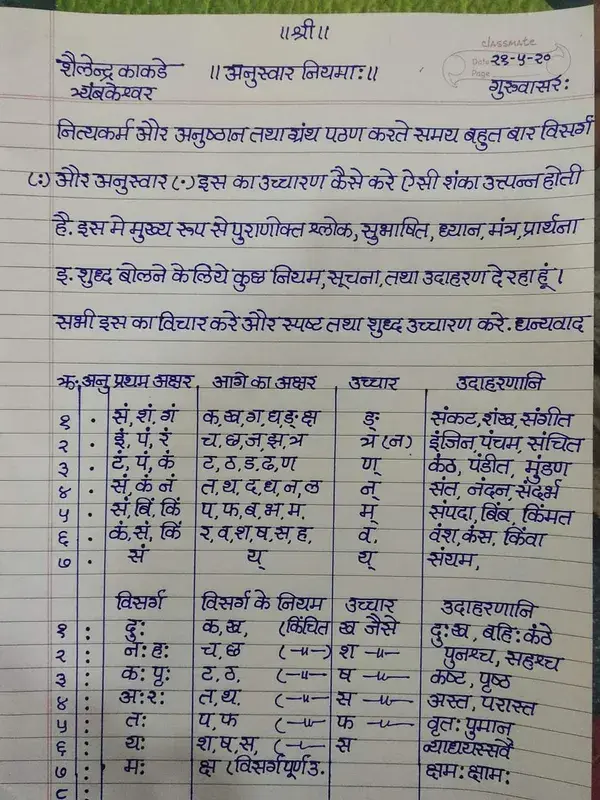 ॥श्री॥
classmate
शैलेन्द्र काकडे ॥अनुस्वार नियमाः॥ Date २१-५-२०
त्र्यंबकेश्वर Page गुरुवासरः
नित्यकर्म और अनुष्ठान तथा ग्रंथ पठण करते समय बहुत बार विसर्ग
(:) और अनुस्वार (·) इस का उच्चारण कैसे करे ऐसी शंका उत्पन्न होती
है. इस मे मुख्य रूप से पुराणोक्त श्लोक, सुभाषित, ध्यान, मंत्र, प्रार्थना
इ. शुध्द बोलने के लिये कुछ नियम, सूचना, तथा उदाहरण दे रहा हूं।
सभी इस का विचार करे और स्पष्ट तथा शुध्द उच्चारण करे. धन्यवाद
क्र. अनु प्रथम अक्षर आगे का अक्षर उच्चार उदाहरणानि
१ · सं, शं, गं क, ख, ग, घ, ङ्, क्ष ङ् संकट, शंख, संगीत
२ · इं, पं, रं च, छ, ज, झ, ञ ञ (न) इंजिन, पंचम, संचित
३ · टं, पं, कं ट, ठ, ड, ढ, ण ण् कंठ, पंडीत, मुंडण
४ · सं, कं नं त, थ, द, ध, न, ल न् संत, नंदन, संदर्भ
५ · सं, बिं, किं प, फ, ब, भ, म. म् संपदा, बिंब, किंमत
६ · कं, सं, किं र, व, श, ष, स, ह, वं. वंश, कंस, किंवा
७ · सं य् य् संयम,
विसर्ग विसर्ग के नियम उच्चार उदाहरणानि
१ : दुः क, ख, (किंचित ख जैसे दुःख, बहिः कंठे
२ : नः हः च, छ (—॥—) श —॥— पुनश्च, सहश्च
३ : कः पृः ट, ठ, (—॥— ष —॥— कष्ट, पृष्ठ
४ : अः रः त, थ. (—॥— स —॥— अस्त, परास्त
५ : तः प, फ (—॥— फ —॥— वृतः पुमान
६ : यः श, ष, स, (—॥— स व्याधयस्सर्वे
७ : मः क्ष (विसर्गपूर्ण उ. क्षमः क्षामः
८ :